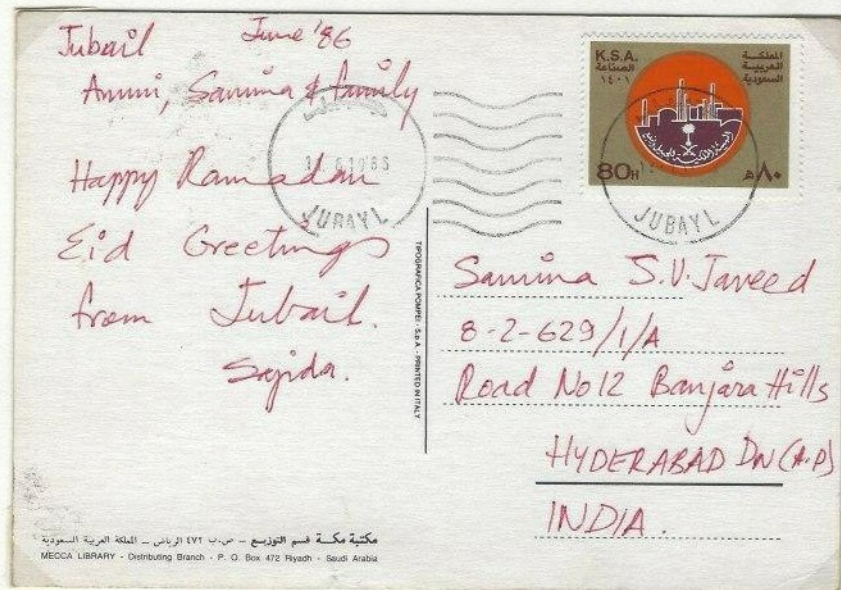 Jubail June '86
Ammi, Samina & family
Happy Ramadan
Eid Greetings
from Jubail.
Sajida.
JUBAYL
K.S.A.
الصناعة
١٤٠١
المملكة
العربية
السعودية
80H
٨٠ هـ
JUBAYL
TIPOGRAFICA POMPEI - S.p.A. - PRINTED IN ITALY
Samina S.V. Javeed
8-2-629/1/A
Road No 12 Banjara Hills
HYDERABAD DN (A.P)
INDIA.
مكتبة مكة قسم التوزيع – ص.ب ٤٧٢ الرياض – المملكة العربية السعودية
MECCA LIBRARY - Distributing Branch - P. O. Box 472 Riyadh - Saudi Arabia